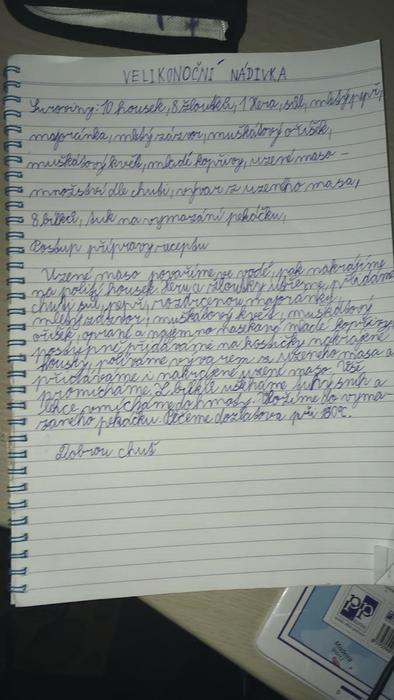 VELIKONOČNÍ NÁDIVKA
Suroviny: 10 housek, 8 žloutků, 1 Hera, sůl, mletý pepř,
majoránka, mletý zázvor, muškátový oříšek,
muškátový květ, mladé kopřivy, uzené maso –
množství dle chuti, vývar z uzeného masa,
8 bílků, tuk na vymazání pekáčku,
Postup přípravy receptu
Uzené maso povaříme ve vodě, pak nakrájíme
na housek. Heru a žloutky utřeme, přidáme
chuti sůl, pepř, rozdrcenou majoránku,
mletý zázvor, muškátový květ, muškátový
oříšek, oprané a najemno nasekané mladé kopřivy,
postupně přidáváme na kostičky nakrájené
housky, poléváme vývarem z uzeného masa a
přidáváme i nakrájené uzené maso. Vše
promícháme. Z bílků ušleháme tuhý sníh a
lehce vmícháme do hmoty. Vložíme do vyma-
zaného pekáčku. Pečeme dozlatova při 180°C.
Dobrou chuť
PP